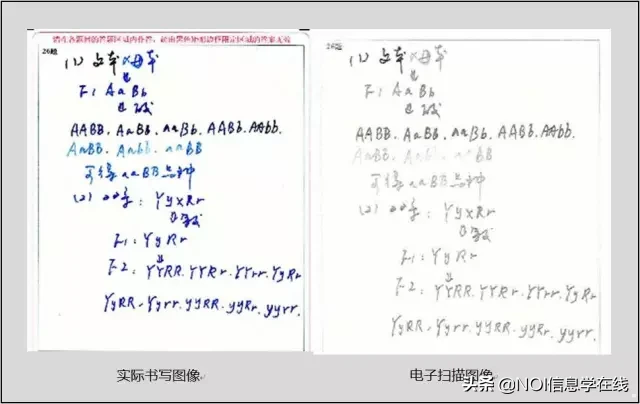 请在各题目的答题区域内作答,超出黑色矩形边框限定区域的答案无效
26题
(1) 父本 × 母本
↓
F1 AaBb
↓
AABB、AaBB、aaBb、AABb、AAbb、
AaBB、Aabb、aaBB
可得aaBB品种
(2) YyxRr
↓
F1: YyRr
↓
F2: YYRR、YYRr、YYrr、YyRr
YyRR、Yyrr、yyRR、yyRr、yyrr、
实际书写图像
26题
(1) 父本 × 母本
↓
F1 AaBb
↓
AABB、AaBB、aaBb、AABb、AAbb、
AaBB、Aabb、aaBB
可得aaBB品种
(2) YyxRr
↓
F1: YyRr
↓
F2: YYRR、YYRr、YYrr、YyRr
YyRR、Yyrr、yyRR、yyRr、yyrr、
电子扫描图像
头条 @NOI信息学在线